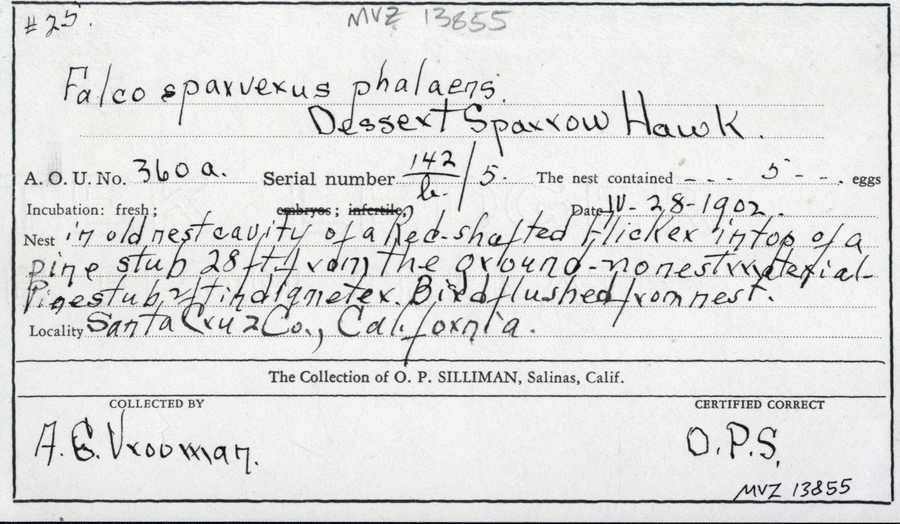 #25
MVZ 13855
Falco sparverus phalaens.
Dessert Sparrow Hawk.
A. O. U. No. 360 a. Serial number 142/b / 5. The nest contained - - - 5 - - . eggs
Incubation: fresh; embryos; infertile, Date IV- 28-1902.
Nest in old nest cavity of a Red-shafted Flicker in top of a
pine stub 28 ft. from the ground-no nest material-
Pine stub 2 ft in diameter. Bird flushed from nest.
Locality Santa Cruz Co., California.
The Collection of O. P. SILLIMAN, Salinas, Calif.
COLLECTED BY CERTIFIED CORRECT
A. G. Vrooman. O.P.S.
MVZ 13855